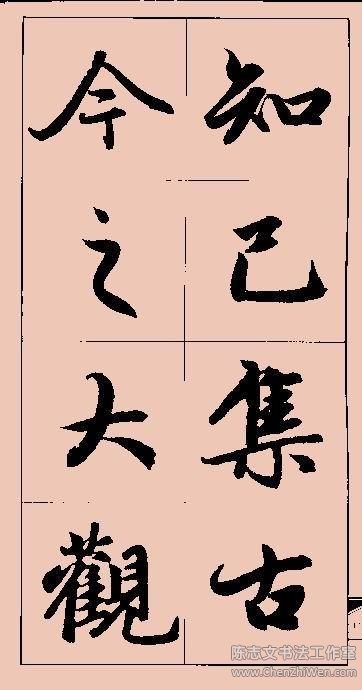 知己集古
今之大觀
陈志文书法工作室
www.ChenZhiWen.com